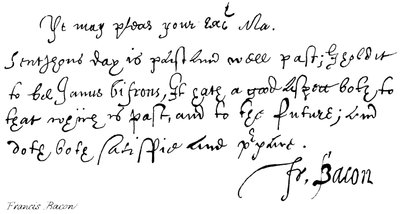 Yt may pleas your Exc^t Ma.
day is past and well past; I hold it
to be Janus bifrons, It hath a good aspect both to
that which is past, and to the future; and
doth both satisfie and p^rpare.
Fr. Bacon
Francis Bacon